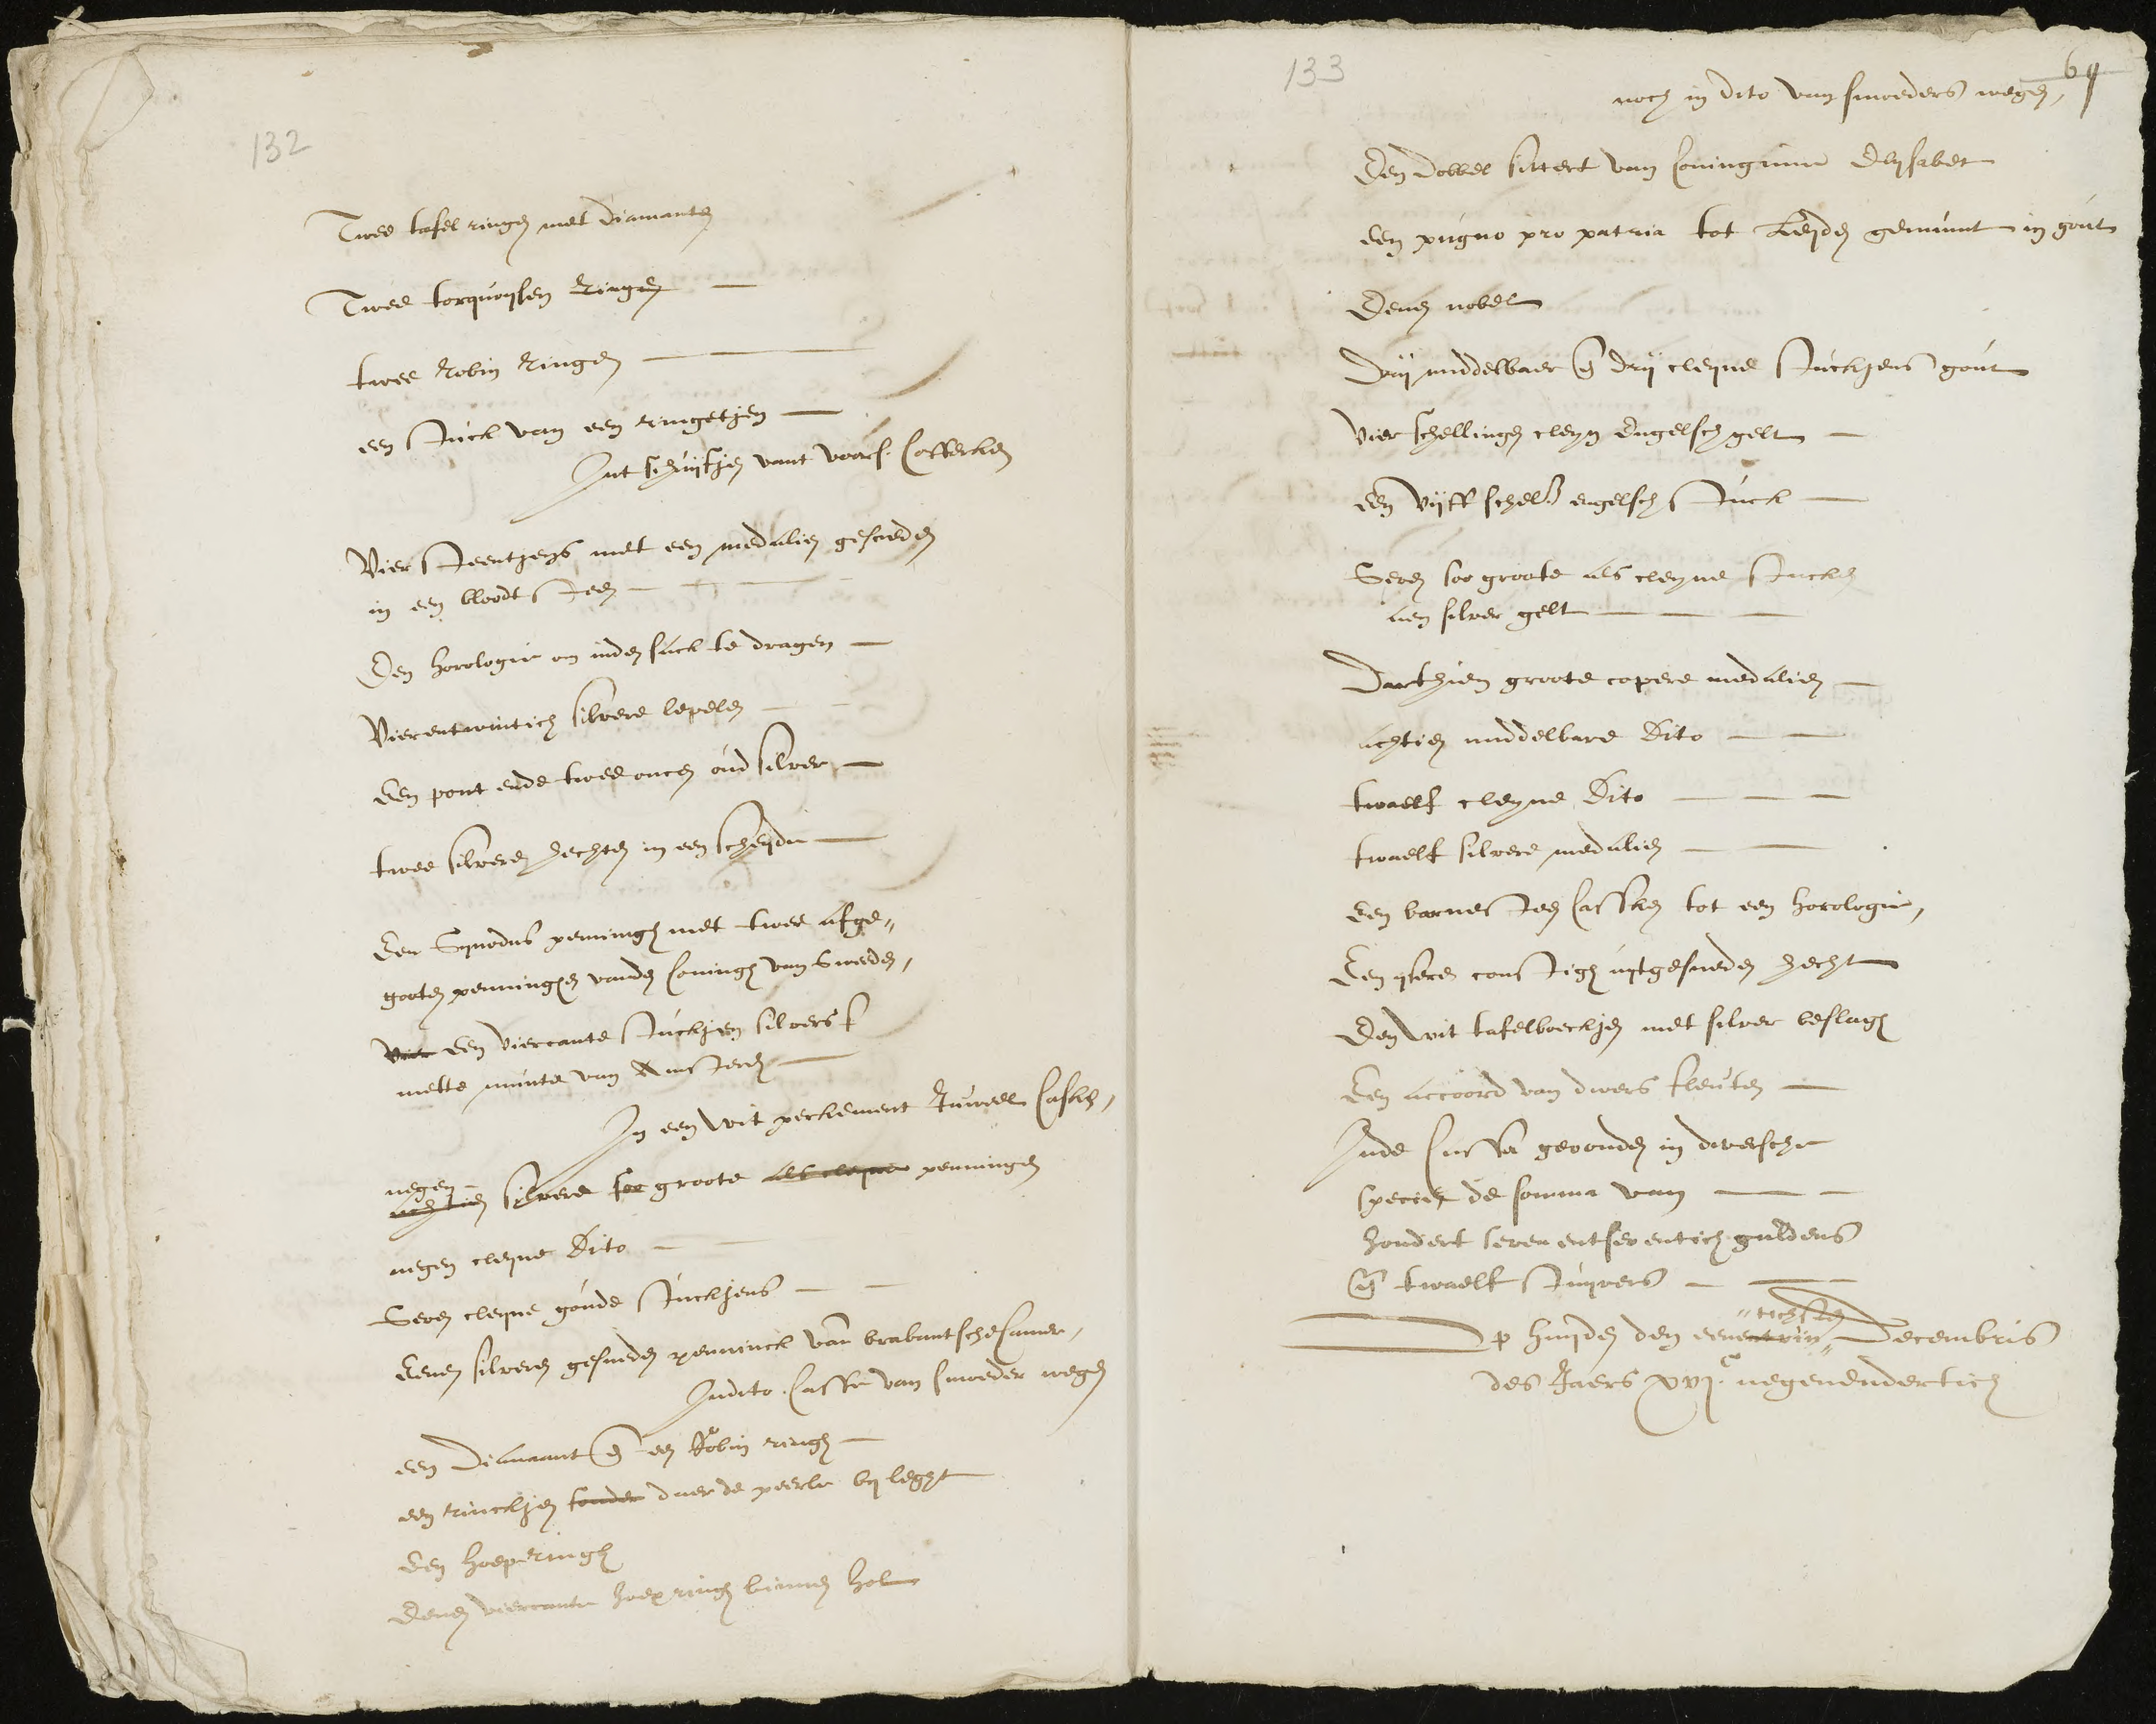 132
Twee tafel ringen met diamanten
Twee torquoysen Ringen
twee Robin Ringen
een stuck van een ringetjen
Int schuijfjen vant voors. Cofferken
Vier steentjens met een medalien gesneden
in een bloedt steen
Een horologie om inden sack te dragen
Vierentwintich silvere lepelen
Een pont ende twee oncen oud silver
twee silveren hechten in een scheijde
Een Synodus penningh met twee afge„
goten penningen vanden Coningh van Sweden,
Vier Een viercante stuckjen silvers
mette munte van Amsterdam
In een wit perckement Juweel Casken,
negen
achtien silvere soo groote als cleyne penningen
negen cleyne Dito
Seven cleyne goude stuckjens
Eenen silveren gesneden penninck van brabantsche Camer,
In dito Casse van smoeder wegen
een Diamant en een Robin ringh
een rinckjen sonder daer de peerle by leght
Een hoepringh
Eenen viercante hoepringh binnen hol
133
64
noch in dito van smoeders wegen,
Een dobbel sittert van Coninginne Elysabet
een pugno pro patria tot Leyden gemunt in gout
Eenen nobel
Drij middelbaer en drij cleyne stuckjens gout
Vier schellingen cleyn Engelsch gelt
Een vijff schell. engelsch stuck
Seven soo groote als cleyne stucken
aen silver gelt
Darthien groote copere medalien
achtien middelbare Dito
twaelf cleyne Dito
twaelf silvere medalien
Een barnesteen Casken tot een horologie,
Een ysere constigh uytgesneden hecht
Een wit tafelboeckjen met silver beslagen
Een accoord van dwers fleuten
Inde Cassa gevonden in diversche
specien de somma van
hondert seven entseventich guldens
en twaelf stuyvers
„tichsten
Op huyden den eenentwin„ Decembris
des Jaers xvjc negenendertich